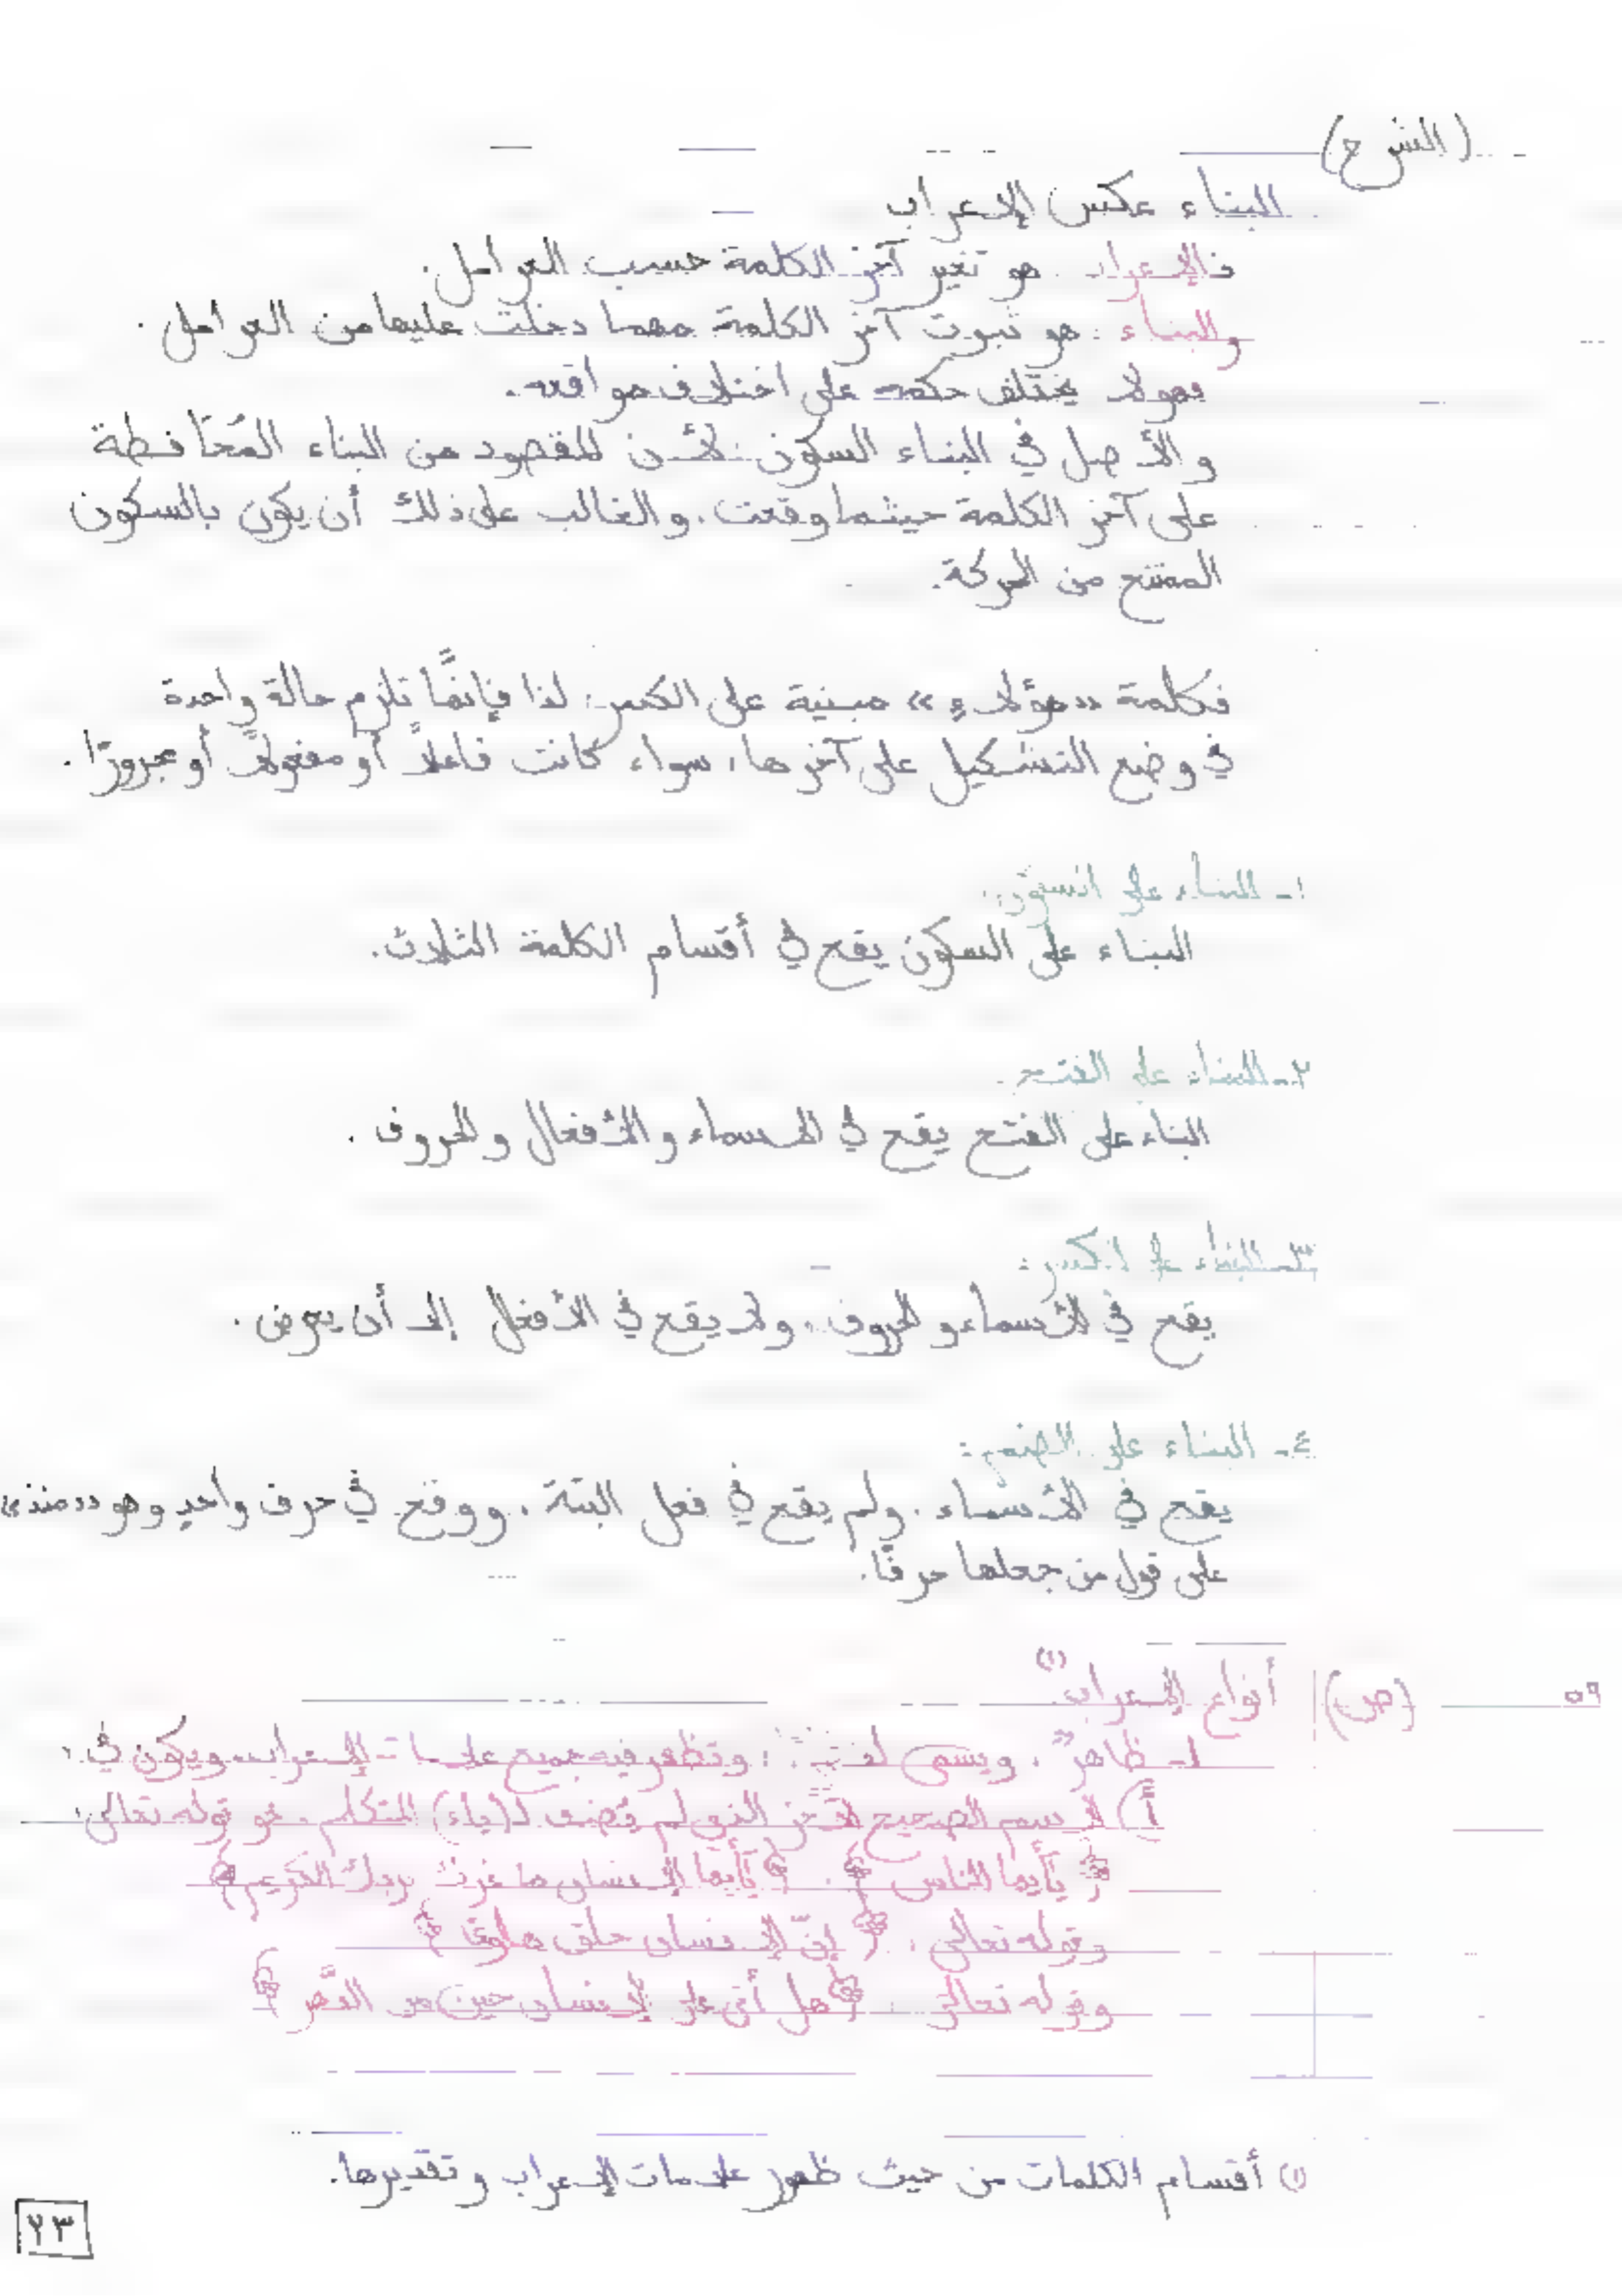 (الشرح)
البناء عكس الإعراب
فالإعراب هو تغير آخر الكلمة حسب العوامل.
والبناء: هو ثبوت آخر الكلمة مهما دخلت عليها من العوامل.
فهو لا يختلف حكمه على اختلاف مواقعه.
والأصل في البناء السكون؛ لأن المقصود من البناء المُحَافظة
على آخر الكلمة حيثما وقعت، والغالب على ذلك أن يكون بالسكون
الممتنع من الحركة.
فكلمة «هؤلاءِ» مبنية على الكسر؛ لذا فإنهَّا تلزم حالة واحدة
في وضع التشكيل على آخرها، سواء كانت فاعلاً أو مفعولاً أو مجرورًا.
١- البناء على السكون:
البناء على السكون يقع في أقسام الكلمة الثلاث.
٢- البناء على الفتح
البناء على الفتح يقع في الأسماء والأفعال والحروف.
٣- البناء على الكسر:
يقع في الأسماء والحروف، ولا يقع في الأفعال إلا أن يعرض.
٤- البناء على الضم:
يقع في الأسماء، ولم يقع في فعل البتة، ووقع في حرف واحدٍ وهو «منذ»
على قول من جعلها حرفًا.
٥٩ (ص) أنواع الإعراب (١)
١- ظاهر، ويسمى، وتظهر فيه جميع علامات الإعراب ويكون في:
أ) الاسم الصحيح الآخر الذي لم يُضف لـ(ياء) المتكلم. نحو قوله تعالى:
﴿يَأيها الناس﴾، ﴿يَأيها الإنسان ما غرك بربك الكريم﴾
وقوله تعالى: ﴿إنّ الإنسان خلق هلوعًا﴾
وقوله تعالى: ﴿هل أتى على الإنسان حين من الدَّهر﴾
(١) أقسام الكلمات من حيث ظهور علامات الإعراب وتقديرها.
٢٣